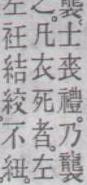 襲。士喪禮。乃襲
之。凡衣死者。左
左衽結絞不紐。